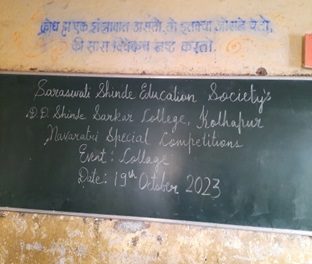 क्रोध हा एक झंझावात असतो, तो इतक्या जोराने येतो,
की सारा विवेकच नष्ट करतो.
Saraswati Shinde Education Society's
D.D. Shinde Sarkar College, Kolhapur
Navaratri Special Competitions
Event : Collage
Date : 19th October 2023